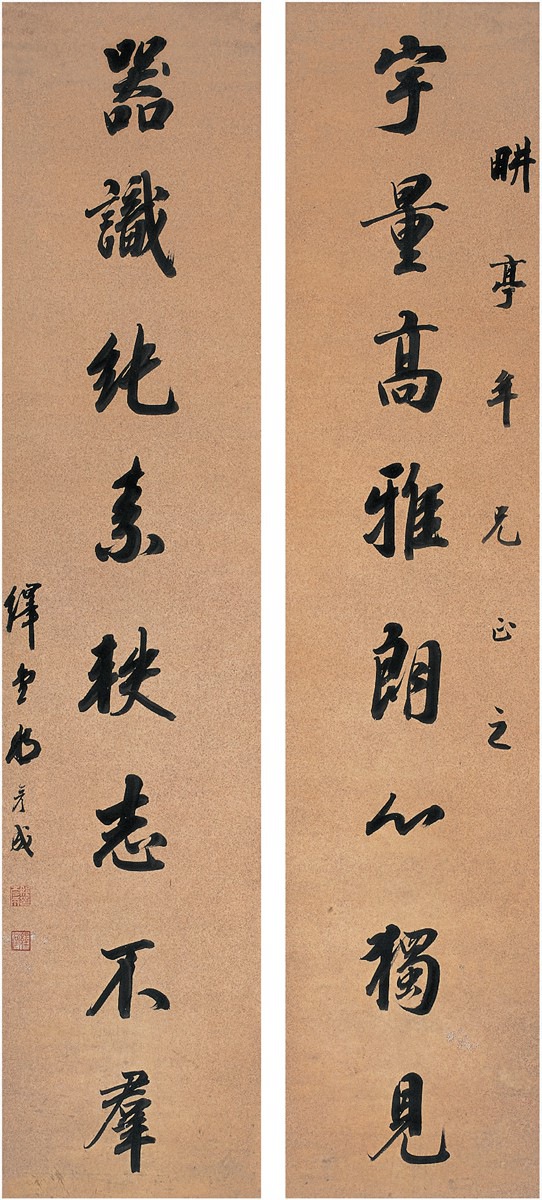 畊亭年兄正之
宇量高雅朗心獨見
器識純素軼志不羣
繹堂那彥成